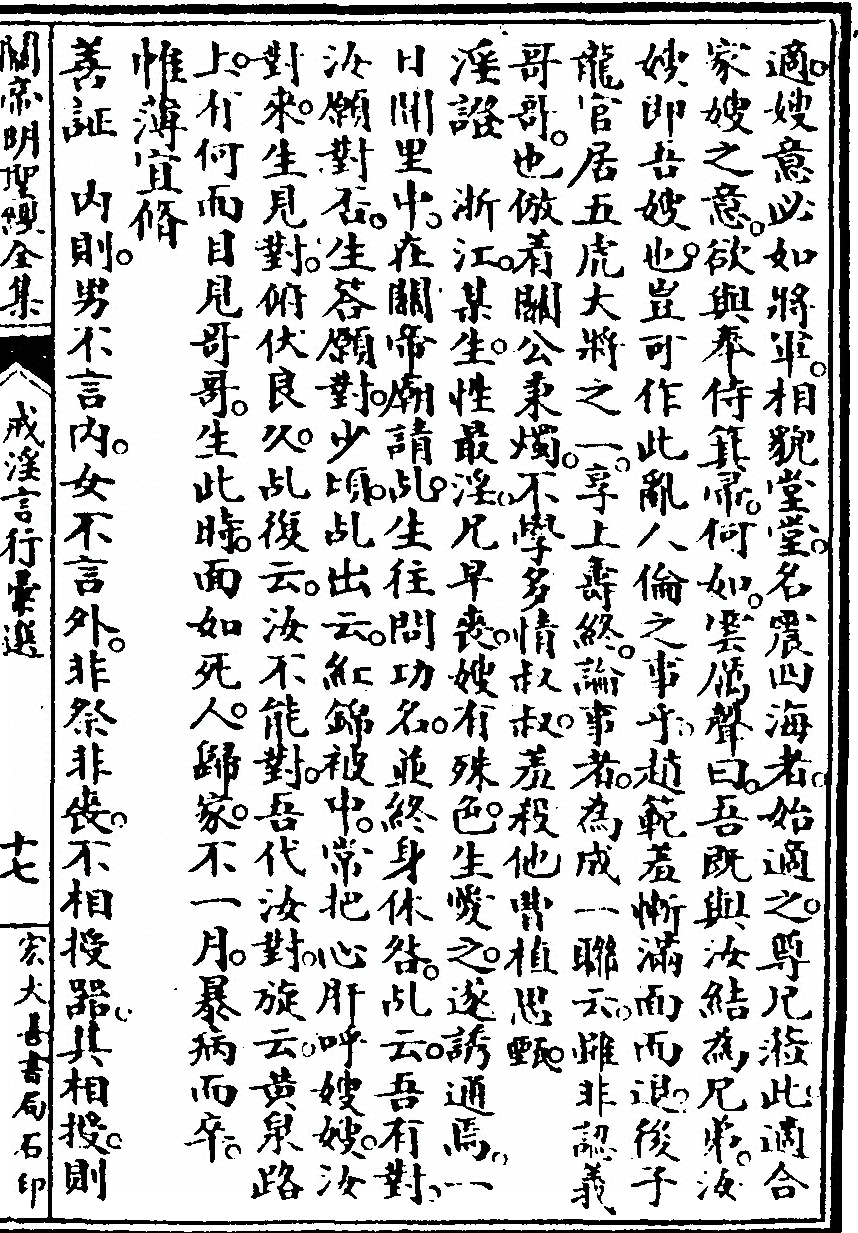 適。嫂意必如將軍。相貌堂堂。名震四海者。始適之。尊兄蒞此。適合
家嫂之意。欲與奉侍箕帚。何如。雲厲聲曰。吾既與汝結為兄弟。汝
嫂即吾嫂也。豈可作此亂人倫之事乎。趙範羞慚滿面而退。後子
龍官居五虎大將之一。享上壽終。論事者。為成一聯云。雖非認義
哥哥。也倣着關公秉燭。不學多情叔叔。羞殺他曹植思甄。
淫證　浙江。某生。性最淫。兄早喪。嫂有殊色。生愛之。遂誘通焉。一
日閒里中。在關帝廟請乩。生往問功名。並終身休咎。乩云。吾有對。
汝願對否。生荅願對。少頃。乩出云。紅錦被中。常把心肝呼嫂嫂。汝
對來。生見對。俯伏良久。乩復云。汝不能對。吾代汝對。旋云。黄泉路
上。有何面目見哥哥。生此時。面如死人。歸家。不一月。暴病而卒。
帷薄宜脩
善証　内則。男不言内。女不言外。非祭非喪。不相授器。其相授。則
關帝明聖經全集
戒淫言行彙選
十七
宏大善書局石印